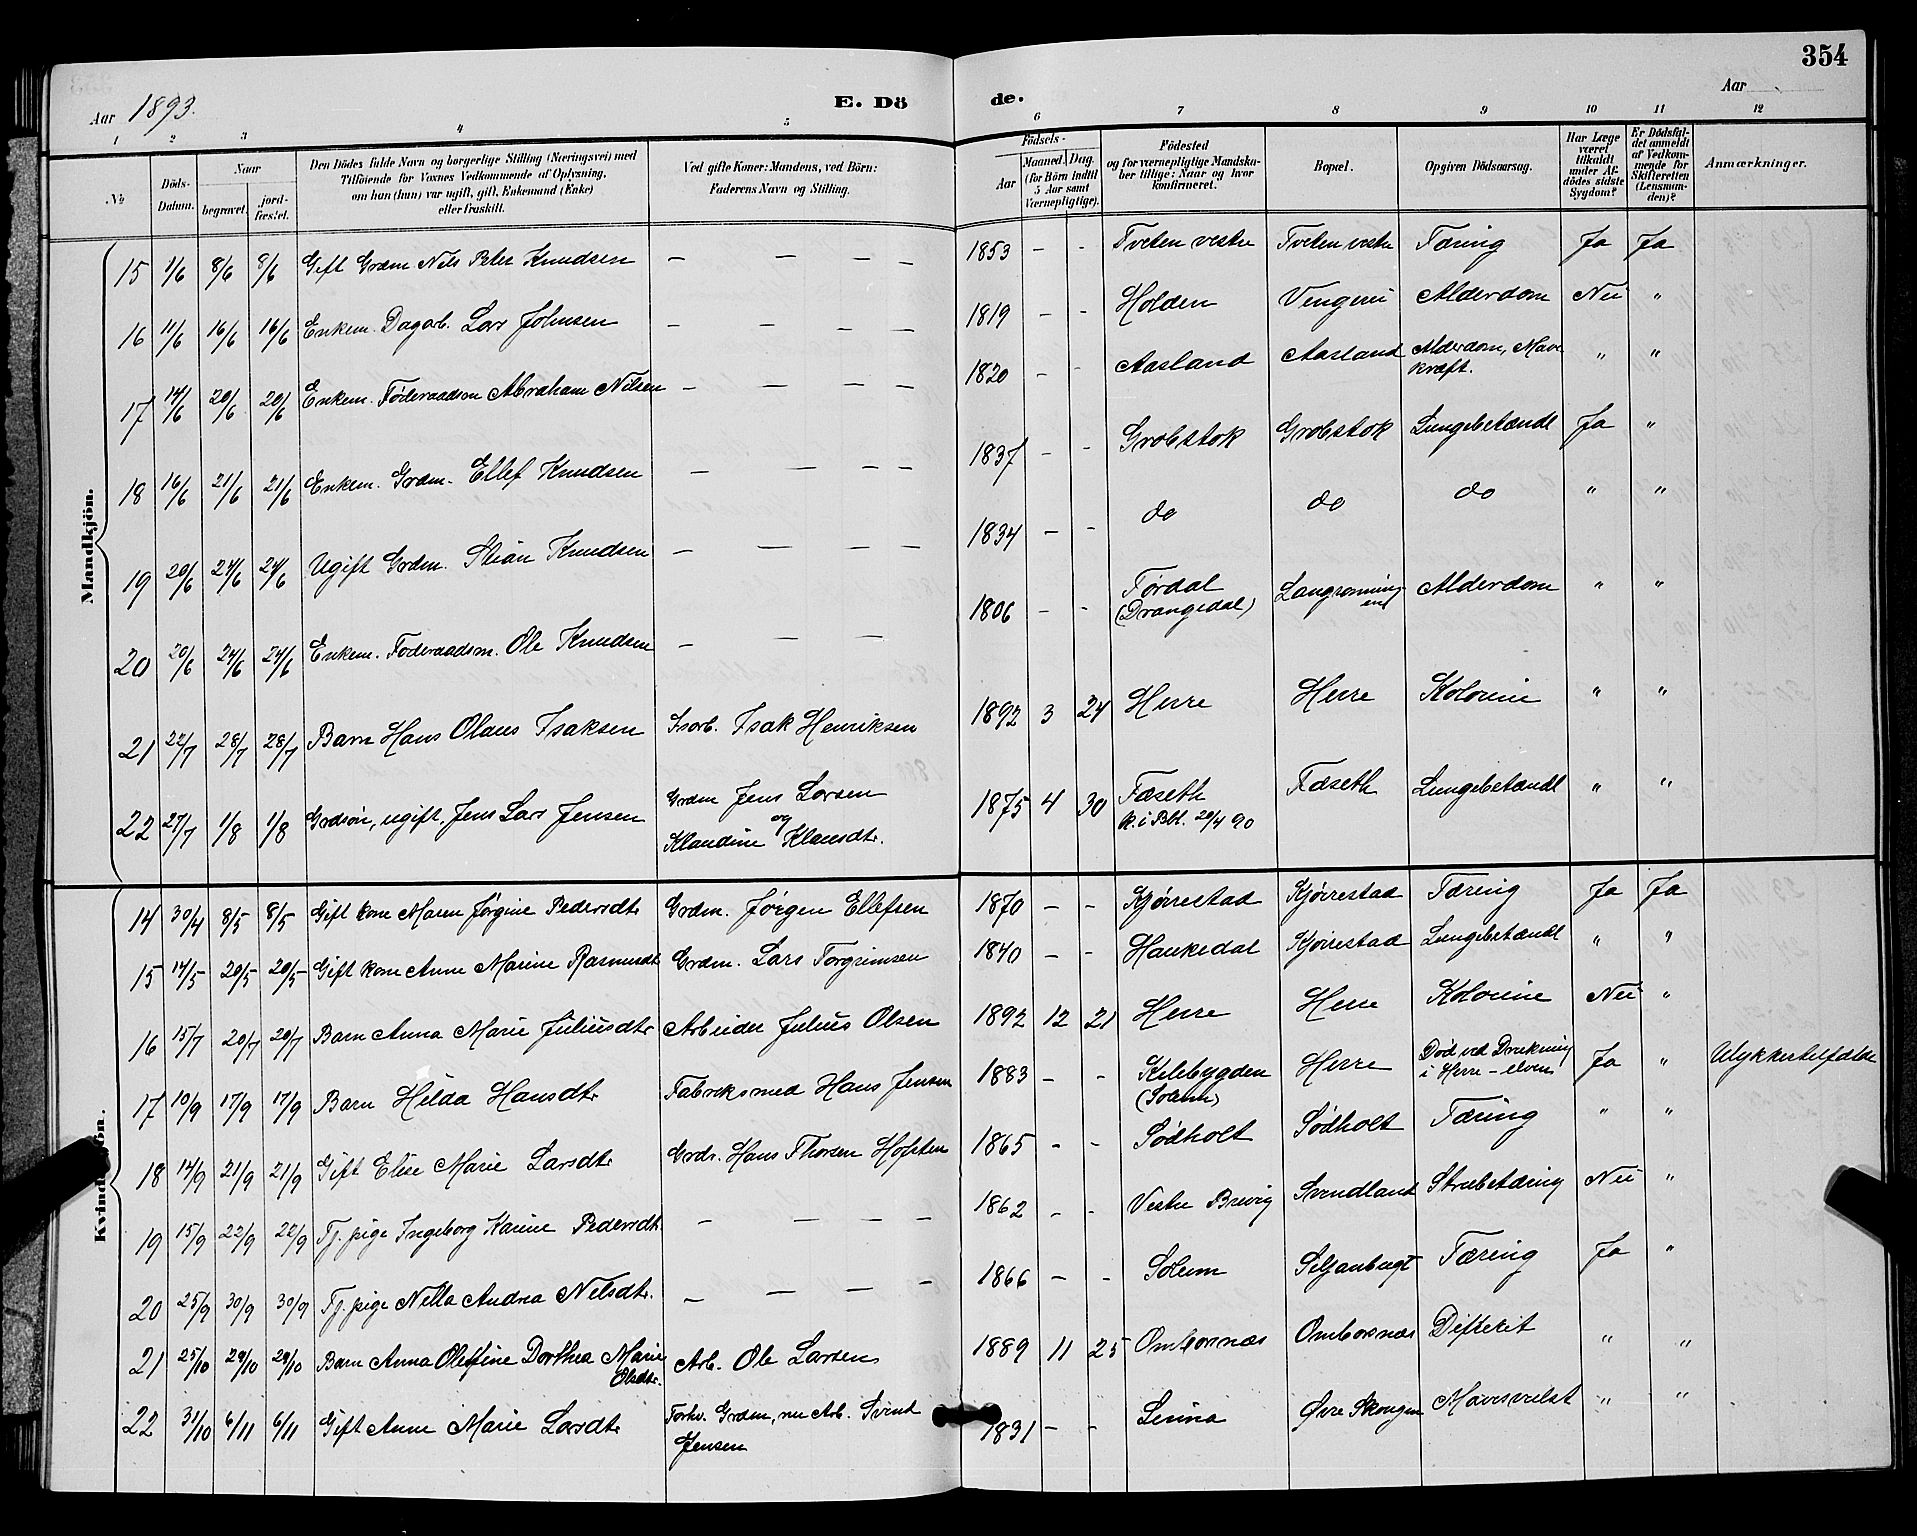 354
Aar 1893.
E. Dö
de.
Aar
1 2 3 4 5 6 7 8 9 10 11 12
№
Døds-Datum.
Naar
begravet.
jord-fæstet.
Den Dödes fulde Navn og borgerlige Stilling (Næringsvei) med
Tilföiende for Voxnes Vedkommende af Oplysning,
om han (hun) var ugift, gift, Enkemand (Enke)
eller fraskilt.
Ved gifte Koner: Mandens, ved Börn:
Faderens Navn og Stilling.
Fødsels-
Aar
Maaned. Dag.
(for Börn indtil
5 Aar samt
Værnepligtige).
Födested
og for værnepligtige Mandska-
ber tillige: Naar og hvor
konfirmeret.
Bopæl.
Opgiven Dödsaarsag.
Har Læge
været
tilkaldt
under Af-
dödes sidste
Sygdom?
Er Dödsfal-
det anmeldt
af Vedkom-
mende for
Skifteretten
(Lensman-
den)?
Anmærkninger.
Mandkjön.
15 1/6 8/6 8/6 Gift Grdm Nils Peter Knudsen — — — — 1853 - - Tveten vestre Tveten vestre Tæring Ja Ja
16 11/6 16/6 16/6 Enkem. Dagarb. Lars Johnsen — — — — 1819 - - Holden Vengeni Alderdom Nei "
17 14/6 20/6 20/6 Enkem. Føderaadsm Abraham Nilsen — — — — 1820 - - Aasland Aasland Alderdom, Mave
kræft. " "
18 16/6 21/6 21/6 Enkem. Grdm. Ellef Knudsen — — — — 1837 - - Grobstok Grobstok Lungebetændl Ja "
19 20/6 24/6 24/6 Ugift Grdm. Stian Knudsen — — — — 1834 - - do do do " "
20 20/6 24/6 24/6 Enkem. Føderaadsm. Ole Knudsen — — — 1806 - - Tørdal
(Drangedal) Langrønning
en Alderdom " "
21 22/7 28/7 28/7 Barn Hans Olaus Isaksen Isarb. Isak Henriksen 1892 3 24 Herre Herre Kolorine " "
22 27/7 1/8 1/8 Grdsøn, ugift, Jens Lars Jensen Grdm Jens Larsen
og
Klaudine Klausdtr. 1875 4 30 Fæseth
k. i Bbl. 20/4 90 Fæseth Lungebetændl " "
14 30/4 8/5 8/5 Gift kone Maren Jørgine Pedersdtr Grdm. Jørgen Ellefsen 1870 - - Kjørrestad Kjørrestad Tæring Ja Ja
15 14/5 20/5 20/5 Gift kone Anne Marine Rasmusdt Grdm. Lars Torgrimsen 1840 - - Haukedal Kjørrestad Lungebetændl " "
16 15/7 20/7 20/7 Barn Anna Marie Juliusdtr Arbeider Julius Olsen 1892 12 21 Herre Herre Kolorine Nei "
17 10/9 17/9 17/9 Barn Hilda Hansdtr Fabriksmed Hans Jensen 1883 - - Kilebygden
(Solum) Herre Død ved Drukning
i Herre-elven Ja " Ulykkestilfælde
18 14/9 21/9 21/9 Gift Elise Marie Larsdtr Grdr. Hans Thorsen Hofsten 1865 - - Sødholt Sødholt Tæring " "
19 15/9 22/9 22/9 Tj. pige Ingeborg Karine Pedersdt. — — — — 1862 - - Vestre Brevig Svendland Strubetæring Nei "
20 25/9 30/9 30/9 Tj. pige Nilla Andrea Nilsdtr. — — — — 1866 - - Solum Siljanbugt Tæring Ja "
21 25/10 29/10 29/10 Barn Anna Oleffine Dorthea Marie
Olsdtr. Arb. Ole Larsen 1889 11 25 Ombornæs Ombornæs Difterit " "
22 31/10 6/11 6/11 Gift Anne Marie Larsdtr Forhv. Grdm, nu Arb. Svend
Jensen 1831 - - Linna Øvre Skougen Mavesvulst " "